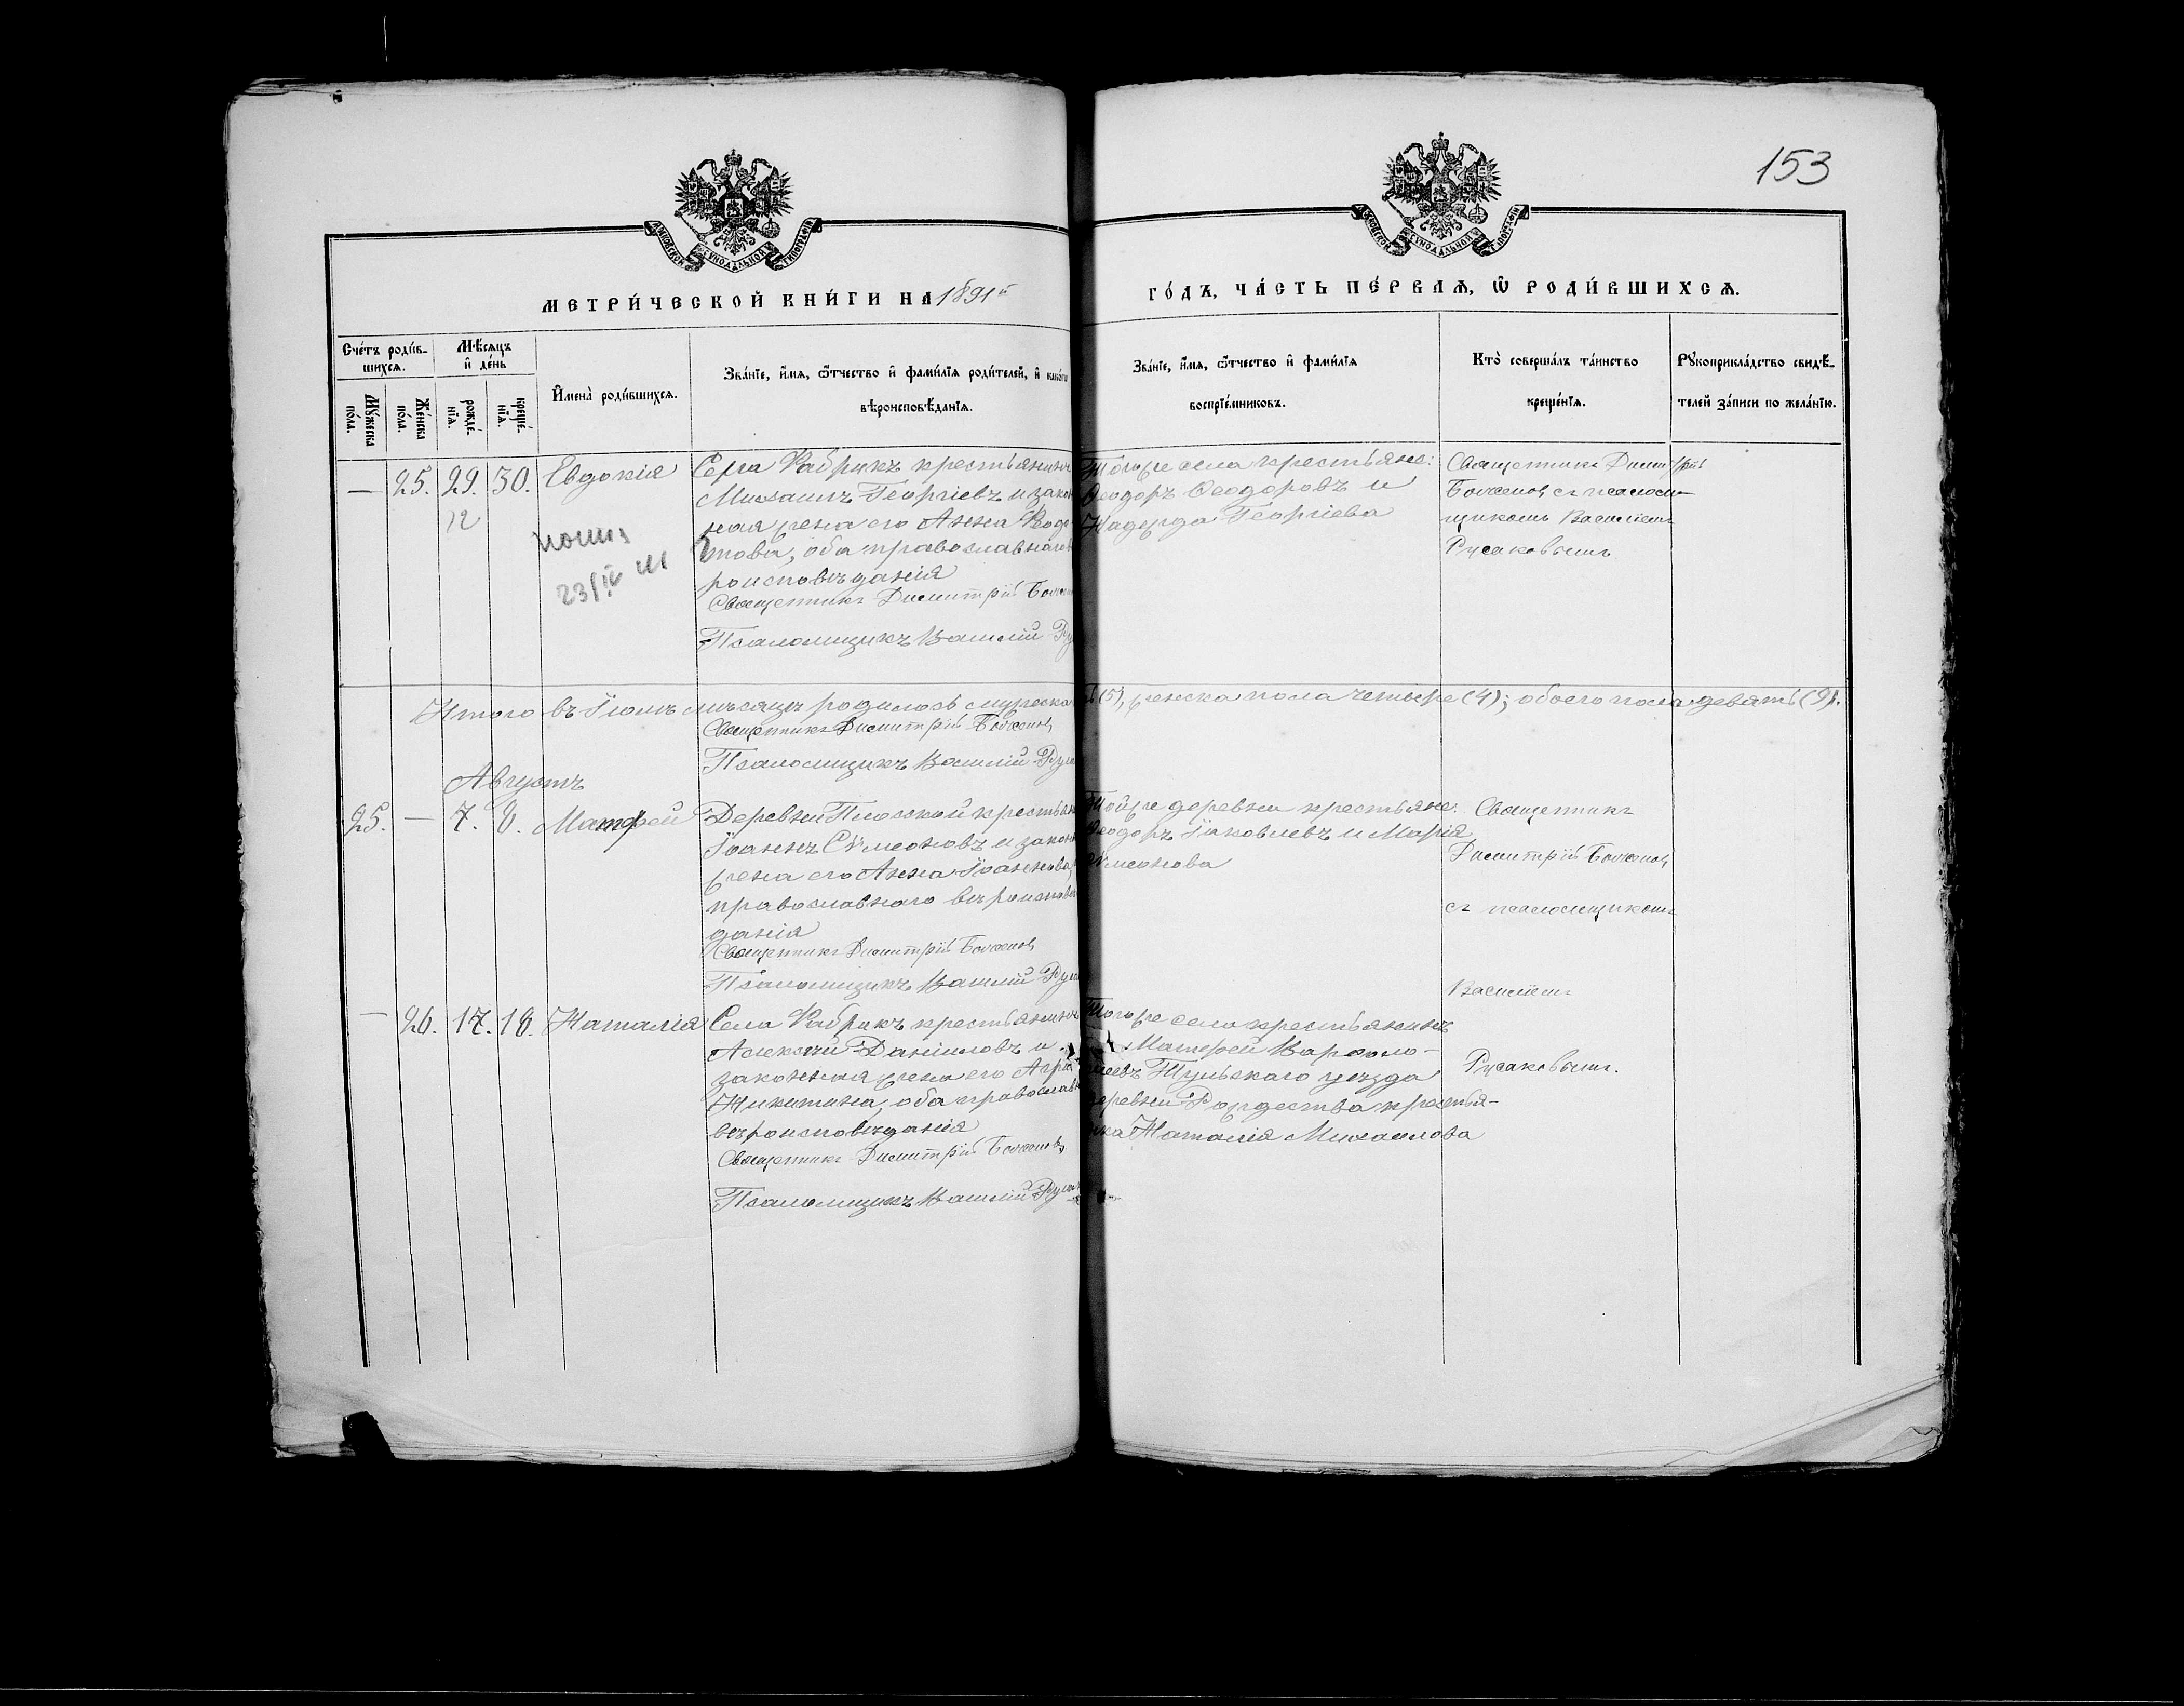 153
МОСКОВСКОЙ СѴНОДАЛЬНОЙ ТИПОГРАФІИ
МОСКОВСКОЙ СѴНОДАЛЬНОЙ ТИПОГРАФІИ
МЕТРИ́ЧЕСКОЙ КНИ́ГИ НА 1891й
ГО́ДЪ, ЧА́СТЬ ПЕ́РВАѦ, Ѡ҆ РОДИ́ВШИХСѦ.
Сче́тъ роди́в-
шихсѧ.
Мꙋ́жеска
по́ла.
Же́нска
по́ла.
Мѣ́сѧцъ
и҆ де́нь
рожде́-
нїѧ.
креще́-
нїѧ.
И҆мена̀ роди́вшихсѧ.
Зва́нїе, и҆́мѧ, ѻ҆́тчество и҆ фами́лїѧ роди́телей, и҆ како́гѡ
вѣроисповѣ́данїѧ.
Зва́нїе, и҆́мѧ, ѻ҆́тчество и҆ фами́лїѧ
воспрїе́мниковъ.
Кто̀ соверша́лъ та́инство
креще́нїѧ.
Рꙋкоприкла́дство свидѣ́-
телей за́писи по жела́нїю.
— 25. 29. 30. Евдокія
12
23/IV
Села Фабрикъ крестьянинъ
Михаилъ Георгіевъ и закон
ная жена его Анна Ѳеодо
това, оба православнаго в
роисповѣданія
Священникъ Димитрій
Псаломщикъ Василій Ру
Тогоже села крестьяне:
Ѳеодоръ Ѳеодоровъ и
Надежда Георгіева
Священникъ Димитрій
съ псалом-
щикомъ Василіемъ
Русаковымъ
Итого въ Іюлѣ мѣсяцѣ родилось мужеска
(5), женска пола четыре (4); обоего пола девять (9).
Священникъ Димитрій
Псаломщикъ Василій Руса
Августъ
25. — 7. 8. Матфей
Деревни Плоской крестьян
Іоаннъ Сѵмеоновъ и законн
жена его Анна Іоаннова,
православнаго вѣроисповѣ
данія
Священникъ Димитрій
Псаломщикъ Василій Руса
Тойже деревни крестьяне:
Ѳеодоръ Іаковлевъ и Марія
Сѵмеонова
Священникъ
Димитрій
съ псаломщикомъ
Василіемъ
Русаковымъ.
— 26. 17. 18. Наталія
Села Фабрикъ крестьянинъ
Алексѣй Даніиловъ и
законная жена его Агри
Никитина, оба православн
вѣроисповѣданія
Священникъ Димитрій
Псаломщикъ Василій Руса
Тогоже села крестьянинъ
Матѳей Варѳоло-
меевъ Тульскаго уѣзда
деревни Рождества крестья-
нка Наталія Михаилова